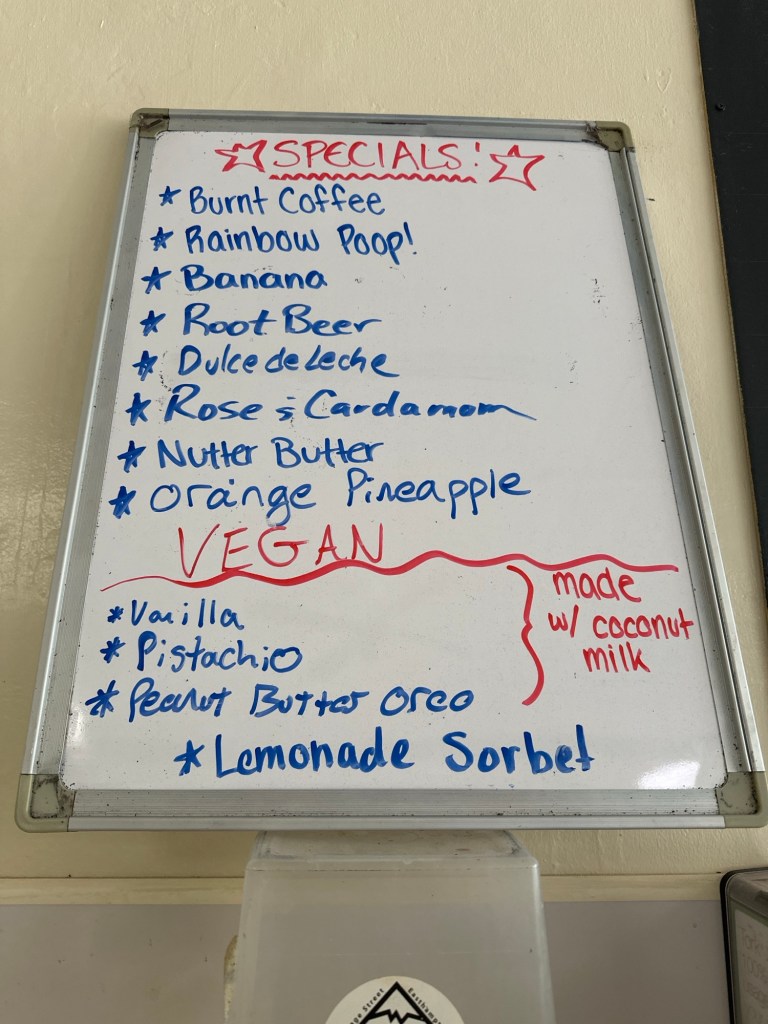 ☆SPECIALS!☆
* Burnt Coffee
* Rainbow Poop!
* Banana
* Root Beer
* Dulce de Leche
* Rose & Cardamom
* Nutter Butter
* Orange Pineapple
VEGAN
* Vanilla
* Pistachio
* Peanut Butter Oreo
made
w/ coconut
milk
* Lemonade Sorbet
Street